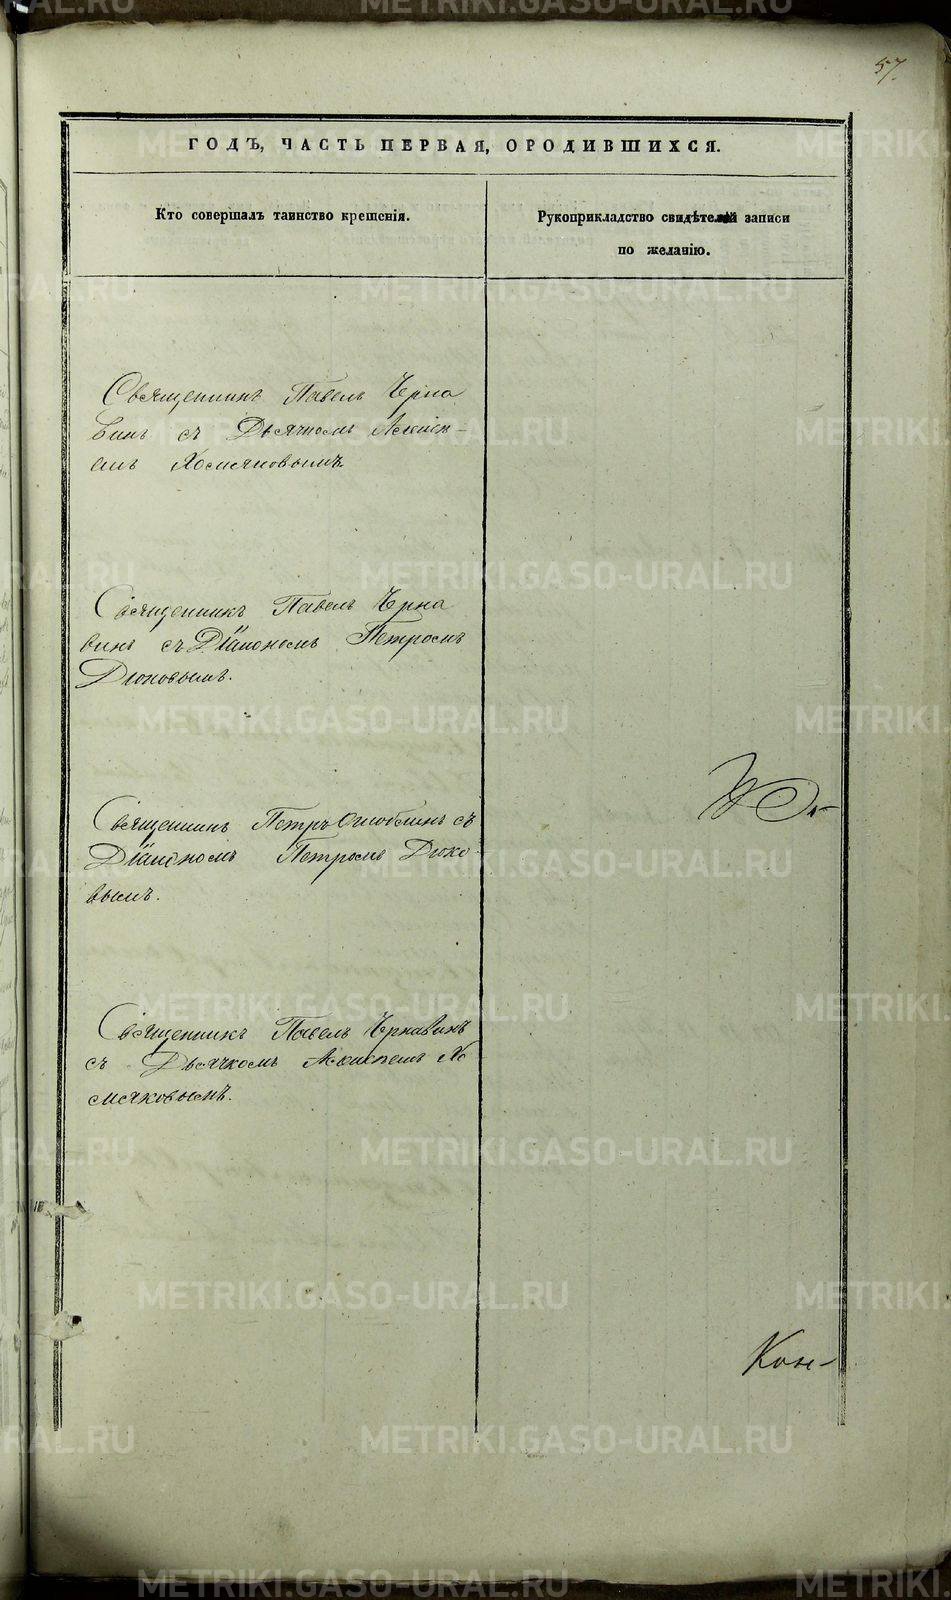 57.
ГОДЪ, ЧАСТЬ ПЕРВАЯ, ОРОДИВШИХСЯ.
Кто совершалъ таинство крещенія.
Рукоприкладство свидѣтелей записи
по желанію.
Священникъ Павелъ Черна
винъ съ Дьячкомъ Алексѣ-
емъ Хомяковымъ
Священникъ Павелъ Черна
винъ съ Діакономъ Петромъ
Дюковымъ.
Священникъ Петръ Оглоблинъ съ
Діакономъ Петромъ Дюко
вымъ.
Священникъ Павелъ Чернавинъ
съ Дьячкомъ Алексѣемъ Хо
мяковымъ.
Кон-
METRIKI.GASO-URAL.RU